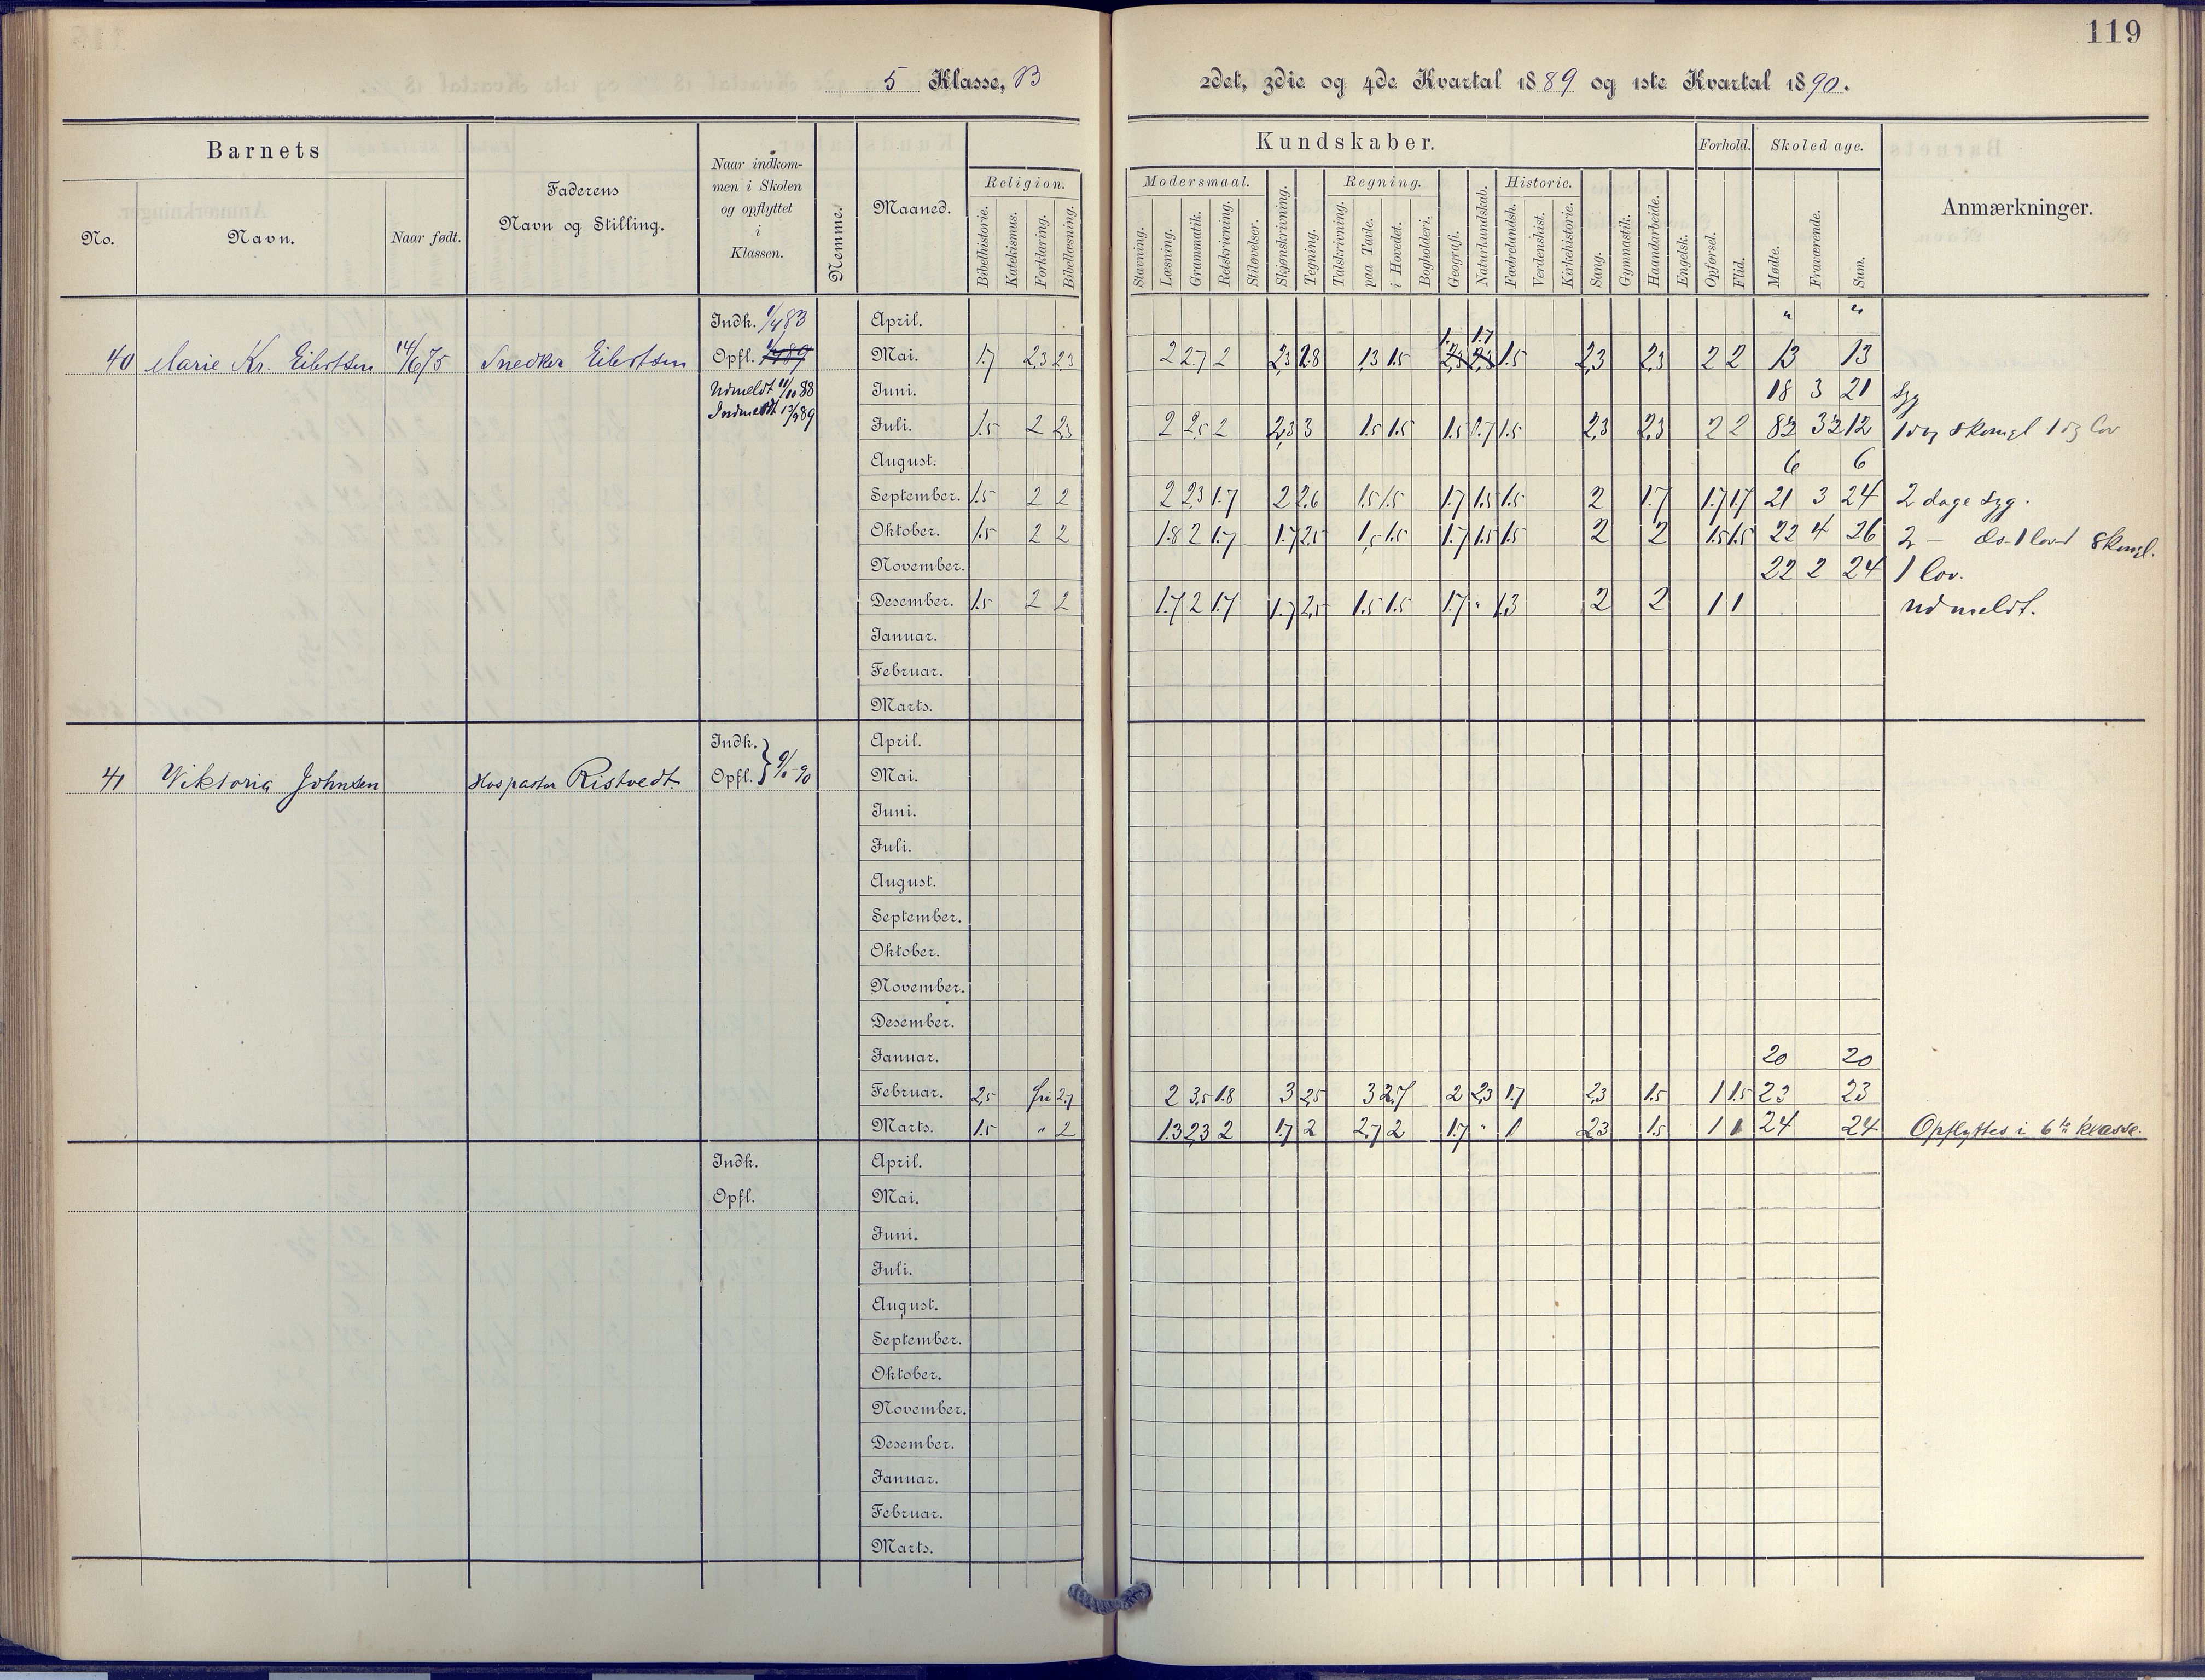 119
5 Klasse, B
2det, 3die og 4de Kvartal 1889 og 1ste Kvartal 1890.
Barnets
No.
Navn.
Naar født.
Faderens
Navn og Stilling.
Naar indkom-
men i Skolen
og opflyttet
i
Klassen.
Nemme.
Maaned.
Kundskaber.
Religion.
Bibelhistorie.
Katekismus.
Forklaring.
Bibellæsning.
Modersmaal.
Stavning.
Læsning.
Grammatik.
Retskrivning.
Stiløvelser.
Skjønskrivning.
Tegning.
Regning.
Talskrivning.
paa Tavle.
i Hovedet.
Bogholderi.
Geografi.
Naturkundskab.
Historie.
Fædrelandsh.
Verdenshist.
Kirkehistorie.
Sang.
Gymnastik.
Haandarbeide.
Engelsk.
Forhold.
Opførsel.
Flid.
Skoledage.
Mødte.
Fraværende.
Sum.
Anmærkninger.
Indk. 1/4 83 April. " "
1.7
40 Marie Kr. Eilertsen 14/6 75 Snedker Eilertsen Opfl. Mai. 1.7 2,3 2,3 2 2.7 2 2,3 2.8 1,3 1.5 2,3 2,3 1.5 2,3 2,3 2 2 13 13
Udmeldt 11/10 88 Juni. 18 3 21 Syg
Indmeldt 13/5 89
Juli. 1.5 2 2,3 2 2,5 2 2,3 3 1.5 1.5 1.5 1.7 1.5 2,3 2,3 2 2 8½ 3½ 12 1 dag skomgl 1 dg lov
August. 6 6
September. 1.5 2 2 2 2,3 1.7 2 2.6 1.5 1.5 1.7 1.5 1.5 2 1.7 1.7 1.7 21 3 24 2 dage syg.
Oktober. 1.5 2 2 1.8 2 1.7 1.7 2.5 1,5 1.5 1.7 1.5 1.5 2 2 1.5 1.5 22 4 26 2 — do. 1 lov 1 skomgl.
November. 22 2 24 1 lov.
Desember. 1.5 2 2 1.7 2 1.7 1.7 2,5 1.5 1.5 1.7 " 1.3 2 2 1 1 udmeldt.
Januar.
Februar.
Marts.
Indk. April.
41 Viktoria Johnsen Hos pastor Ristvedt Opfl. } 9/1-90 Mai.
Juni.
Juli.
August.
September.
Oktober.
November.
Desember.
Januar. 20 20
Februar. 2,5 fri 2.7 2 3.5 1.8 3 2,5 3 2.7 2 2,3 1.7 2,3 1.5 1 1.5 23 23
Marts. 1.5 " 2 1.3 2,3 2 1.7 2 2.7 2 1.7 " 1 2,3 1.5 1 1 24 24 Opflyttes i 6te klasse.
Indk. April.
Opfl. Mai.
Juni.
Juli.
August.
September.
Oktober.
November.
Desember.
Januar.
Februar.
Marts.